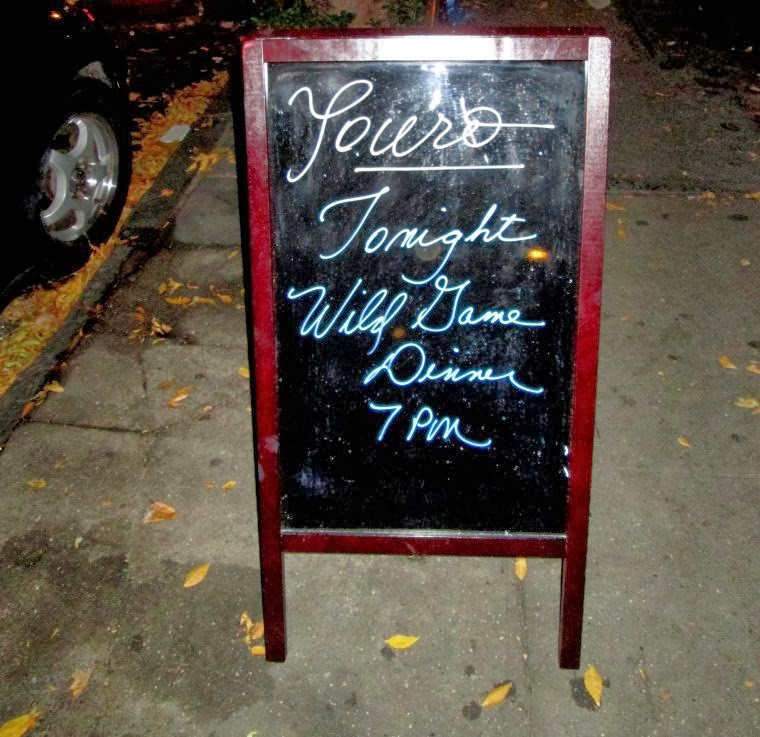 Yours
Tonight
Wild Game
Dinner
7 PM